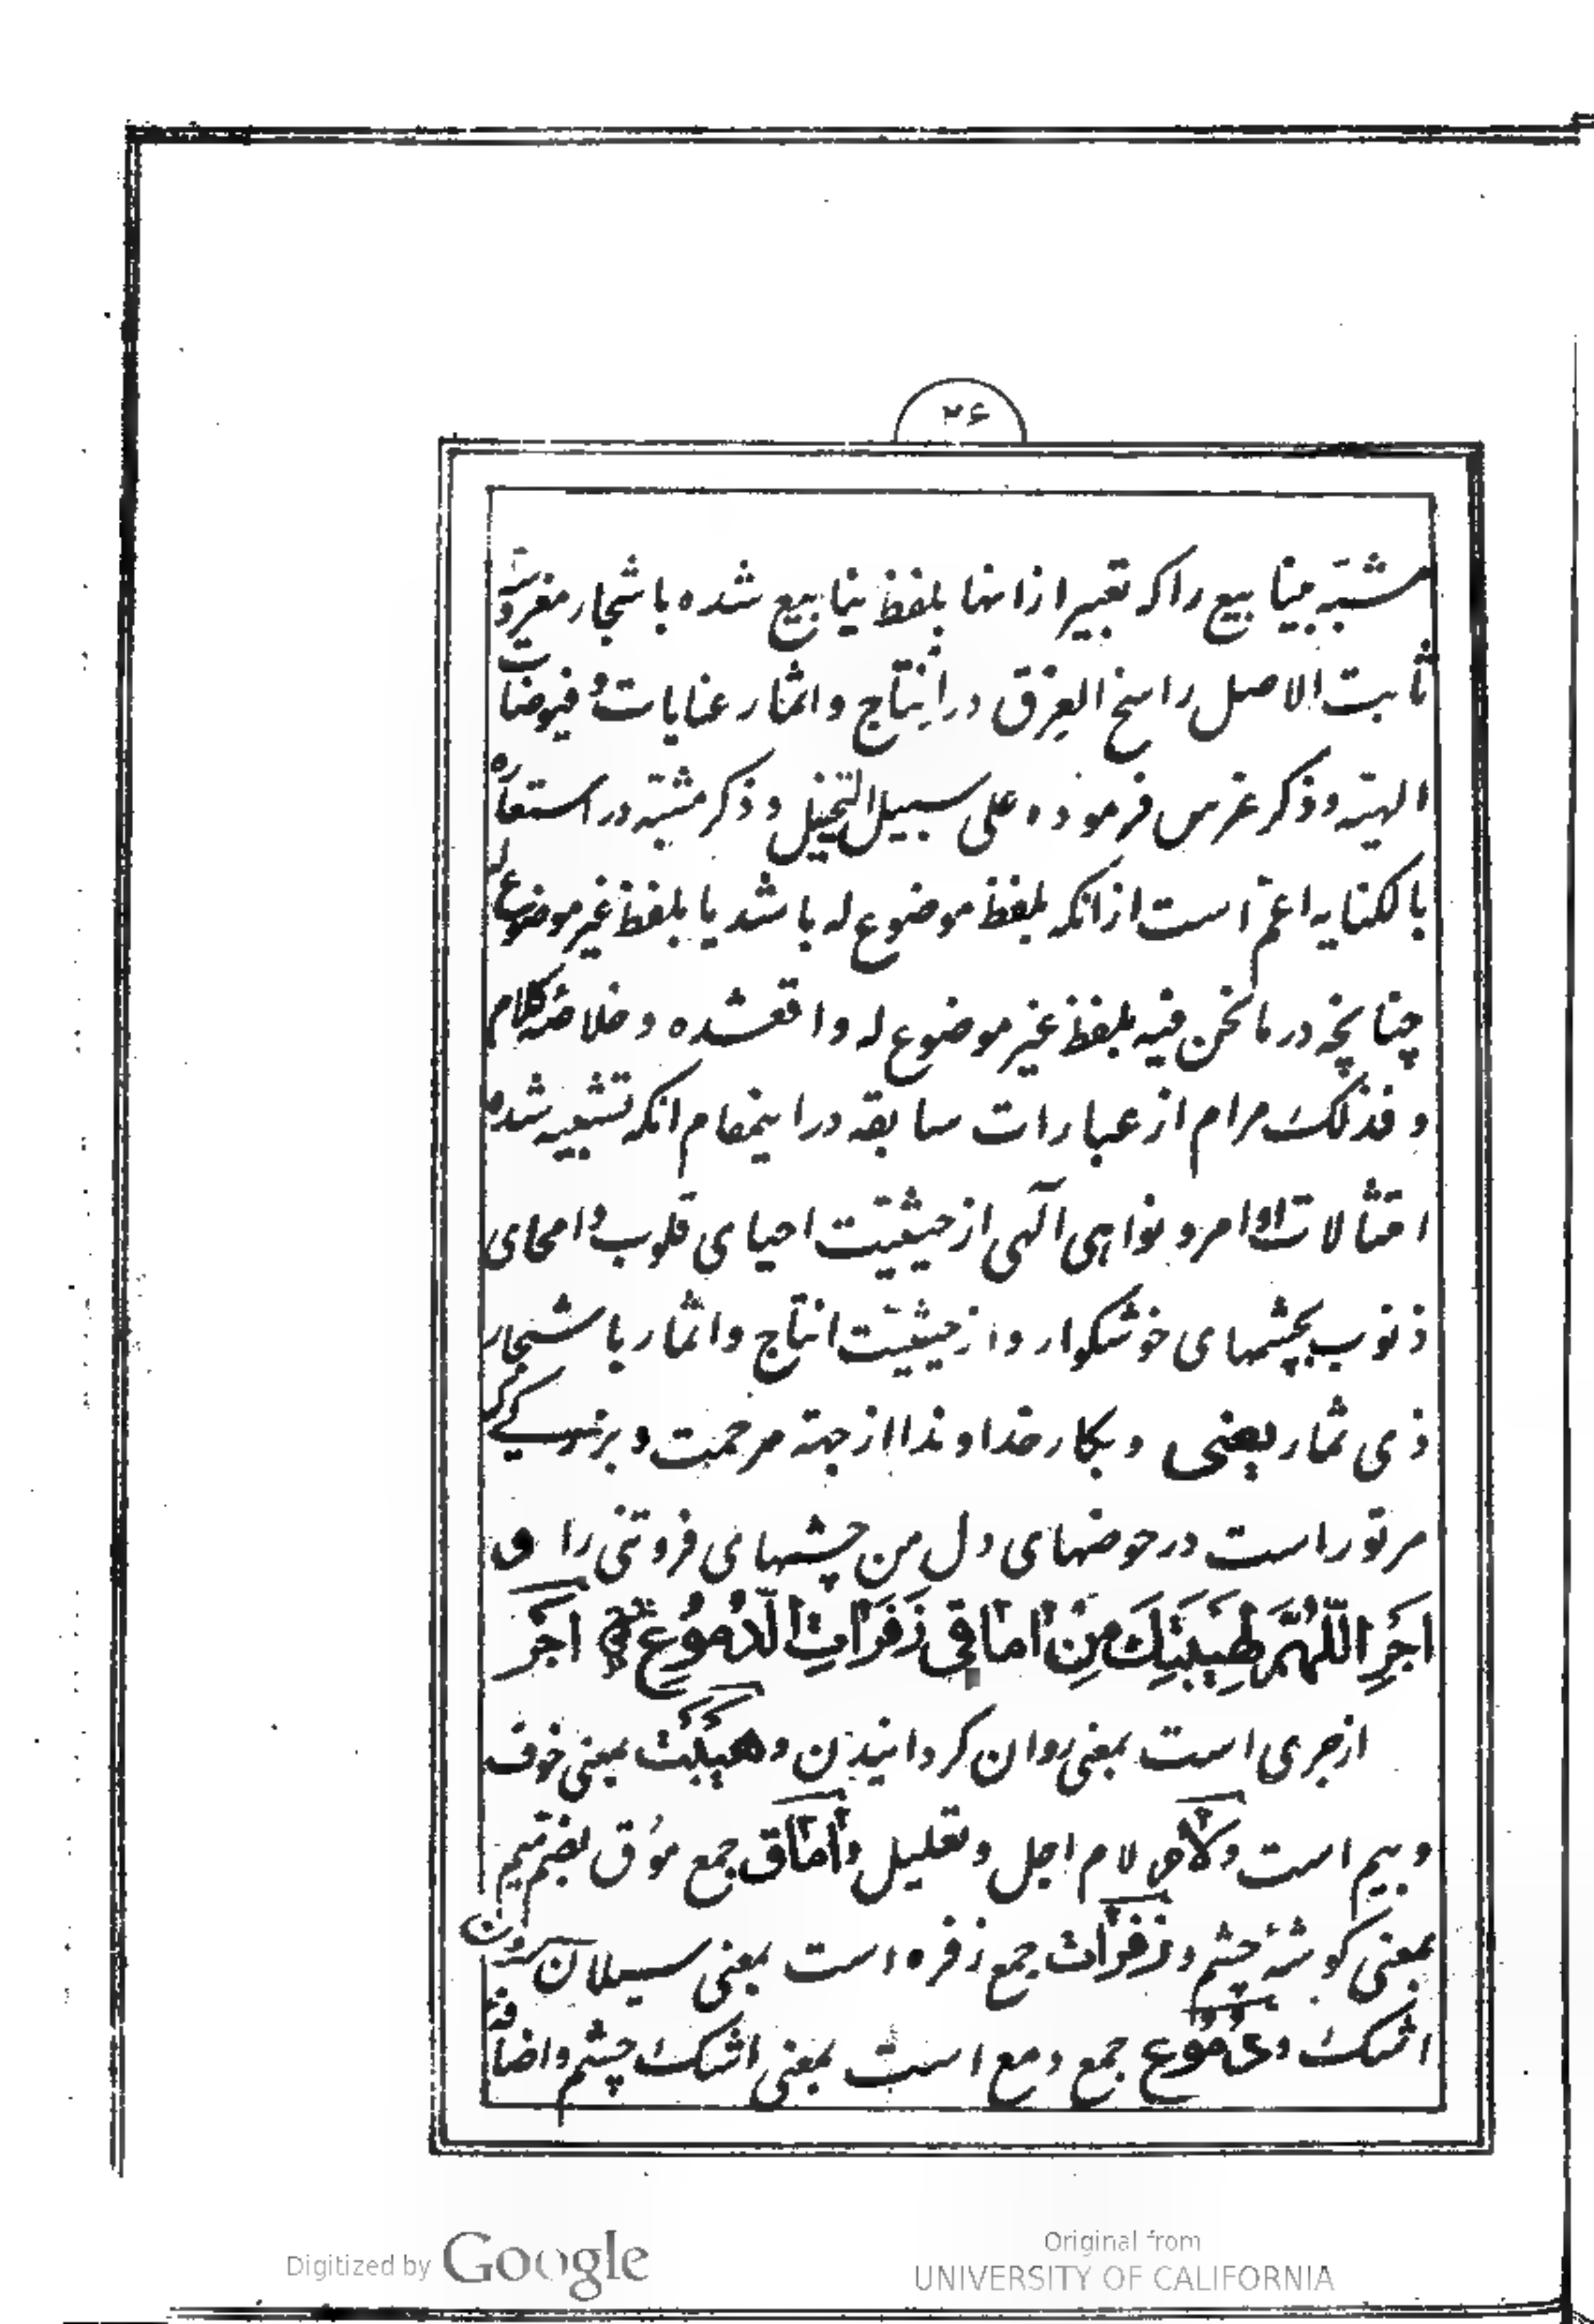 ۲۶
مشبّه بینابیع را که تعبیر از انها بلفظ ینابیع شده باشجار مغروسه
ثابت الاصل راسخ العِرق در اِنتاج و اثمار عنایات و فیوضات
الهیّه و ذکر غرس فرموده علی سبیل التخییل و ذکر مشبّه در استعاره
بالکنایه اعمّ است از انکه بلفظ موضوع له باشد یا بلفظ غیر موضوع له
چنانچه در ما نحن فیه بلفظ غیر موضوع له واقعشده و خلاصهٔ کلام
و فذلک مرام از عبارات سابقه در اینمقام انکه تشبیه شده
امتثالات اوامر و نواهی آلهی از حیثیّت احیای قلوب و امحای
ذنوب بچشمهای خوشکوار و از حیثیّت انتاج و اثمار باشجار
ذی ثمار یعنی و بکار خداوندا از جهة مرحمت و بزرکی که
مر تو راست در حوضهای دل من چشمهای فروتنی را و
اَجْرِ اللّهُمَّ لِهَیْبَتِكَ مِنْ اماقی زَفَراتِ الدُّمُوعِ اَجْرِ
از جری است بمعنی روان کردانیدن و هَیْبَت بمعنی خوف
و بیم است و لام لام اجل و تعلیل و اماق جمع مؤق بضم میم
بمعنی کوشهٔ چشم و زفرات جمع زفره است بمعنی سیلان کردن
اشک و دموع جمع دمع است بمعنی اشک چشم و اضافه
Digitized by Google
Original from
UNIVERSITY OF CALIFORNIA